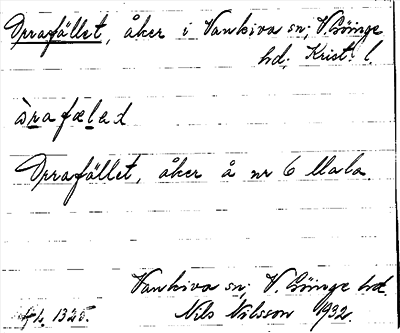 Orrafället, åker i Vankiva sn; V. Göinge
hd; Krist. l.
òrafælad
Orrafället, åker å nr 6 Mala.
Vankiva sn; V. Göinge hd.
Nils Nilsson 1932.